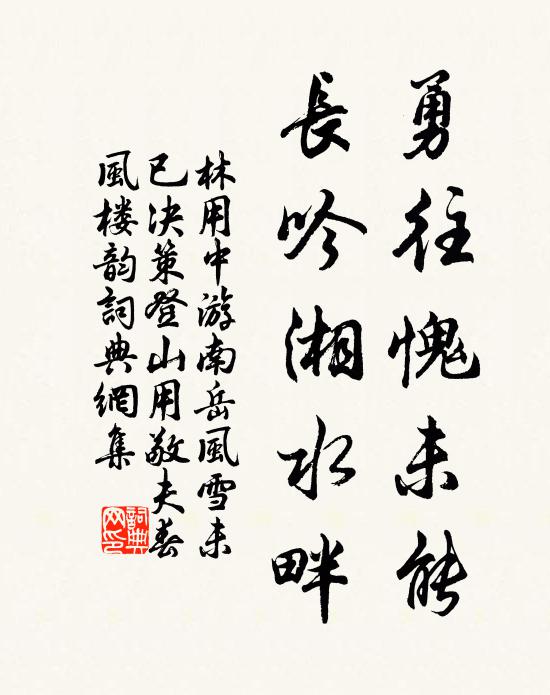 勇往愧未能
長吟湘水畔
林用中游南岳風雪未
已决策登山用敬夫春
風楼韵詞典網集
詞典
网印